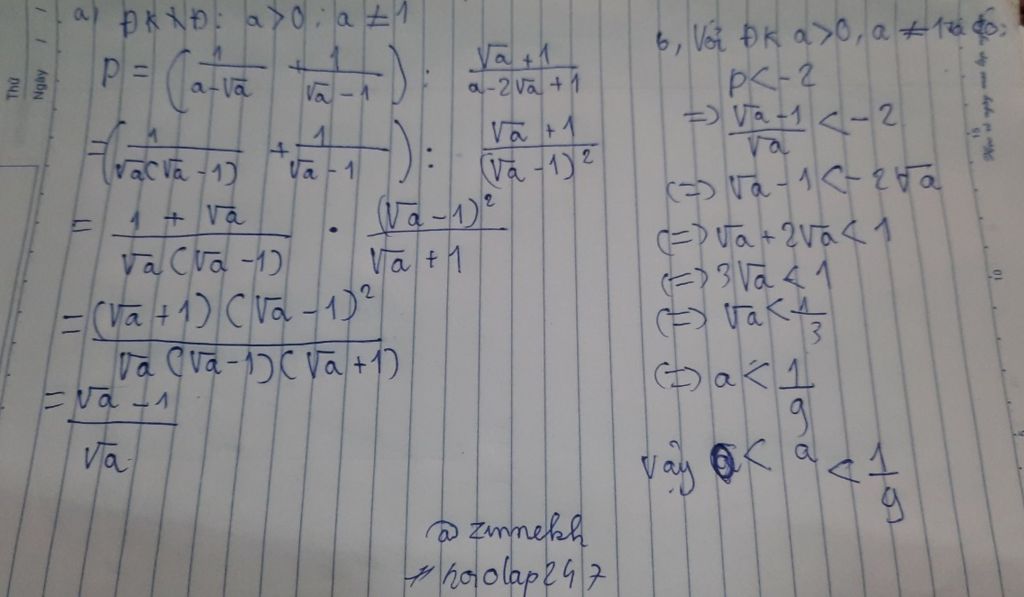 Thứ
Ngày
a) ĐKXĐ: a > 0 ; a ≠ 1
P = (1/(a-√a) + 1/(√a-1)) : (√a+1)/(a-2√a+1)
= (1/(√a(√a-1)) + 1/(√a-1)) : (√a+1)/(√a-1)²
= (1+√a)/(√a(√a-1)) . (√a-1)²/(√a+1)
= (√a+1)(√a-1)²/(√a(√a-1)(√a+1))
= (√a-1)/√a
b, Với ĐK a > 0, a ≠ 1
P < -2
=> (√a-1)/√a < -2
(=) √a - 1 < -2√a
(=) √a + 2√a < 1
(=) 3√a < 1
(=) √a < 1/3
(=) a < 1/9
Vậy 0 < a < 1/9
@ zinnekh
# hoolap247